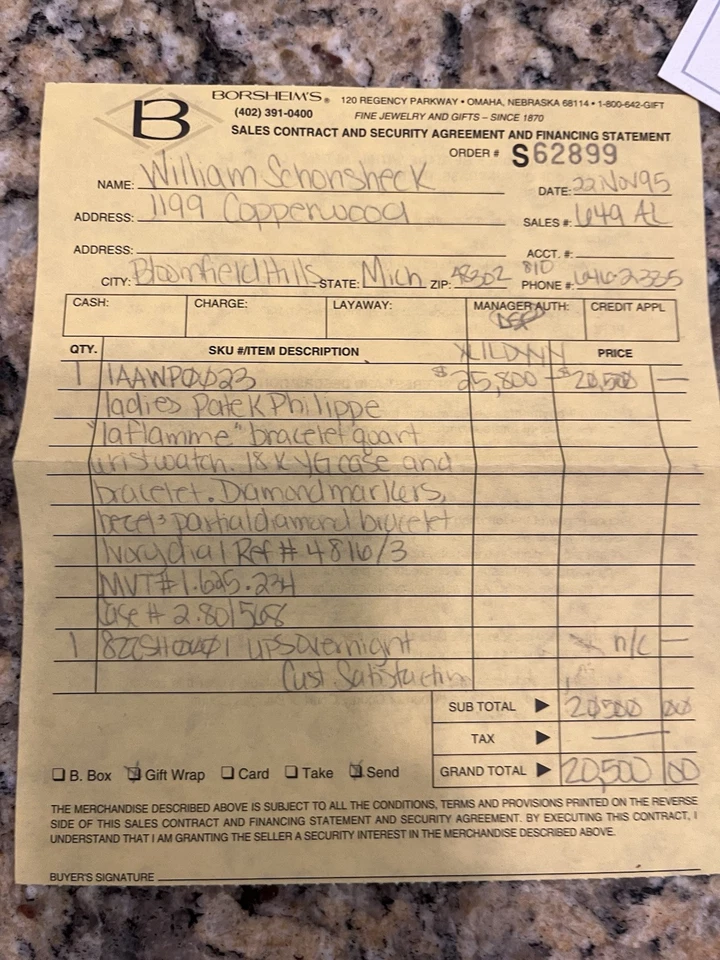 B
BORSHEIM'S® 120 REGENCY PARKWAY • OMAHA, NEBRASKA 68114 • 1-800-642-GIFT
(402) 391-0400 FINE JEWELRY AND GIFTS – SINCE 1870
SALES CONTRACT AND SECURITY AGREEMENT AND FINANCING STATEMENT
ORDER # S62899
NAME: William Schonsheck DATE: 22 Nov 95
ADDRESS: 1199 Copperwood SALES #: 649 AL
ADDRESS: ACCT. #:
CITY: Bloomfield Hills STATE: Mich ZIP: 48302 PHONE #: 810 646-2335
CASH: CHARGE: LAYAWAY: MANAGER AUTH: CREDIT APPL
QTY. SKU #/ITEM DESCRIPTION PRICE
1 1AAWP0023 $25,800 – $20,500 —
ladies Patek Philippe
"laflamme" bracelet quart
wristwatch. 18K YG case and
bracelet. Diamond markers,
bezel & partial diamond bracelet
Ivory dial Ref # 4816/3
MVT # 1.625.234
Case # 2.801568
1 82CSH0001 ups overnight n/c —
Cust. Satisfaction
SUB TOTAL 20500 00
TAX —
GRAND TOTAL 20,500 00
B. Box Gift Wrap Card Take Send
THE MERCHANDISE DESCRIBED ABOVE IS SUBJECT TO ALL THE CONDITIONS, TERMS AND PROVISIONS PRINTED ON THE REVERSE
SIDE OF THIS SALES CONTRACT AND FINANCING STATEMENT AND SECURITY AGREEMENT. BY EXECUTING THIS CONTRACT, I
UNDERSTAND THAT I AM GRANTING THE SELLER A SECURITY INTEREST IN THE MERCHANDISE DESCRIBED ABOVE.
BUYER'S SIGNATURE